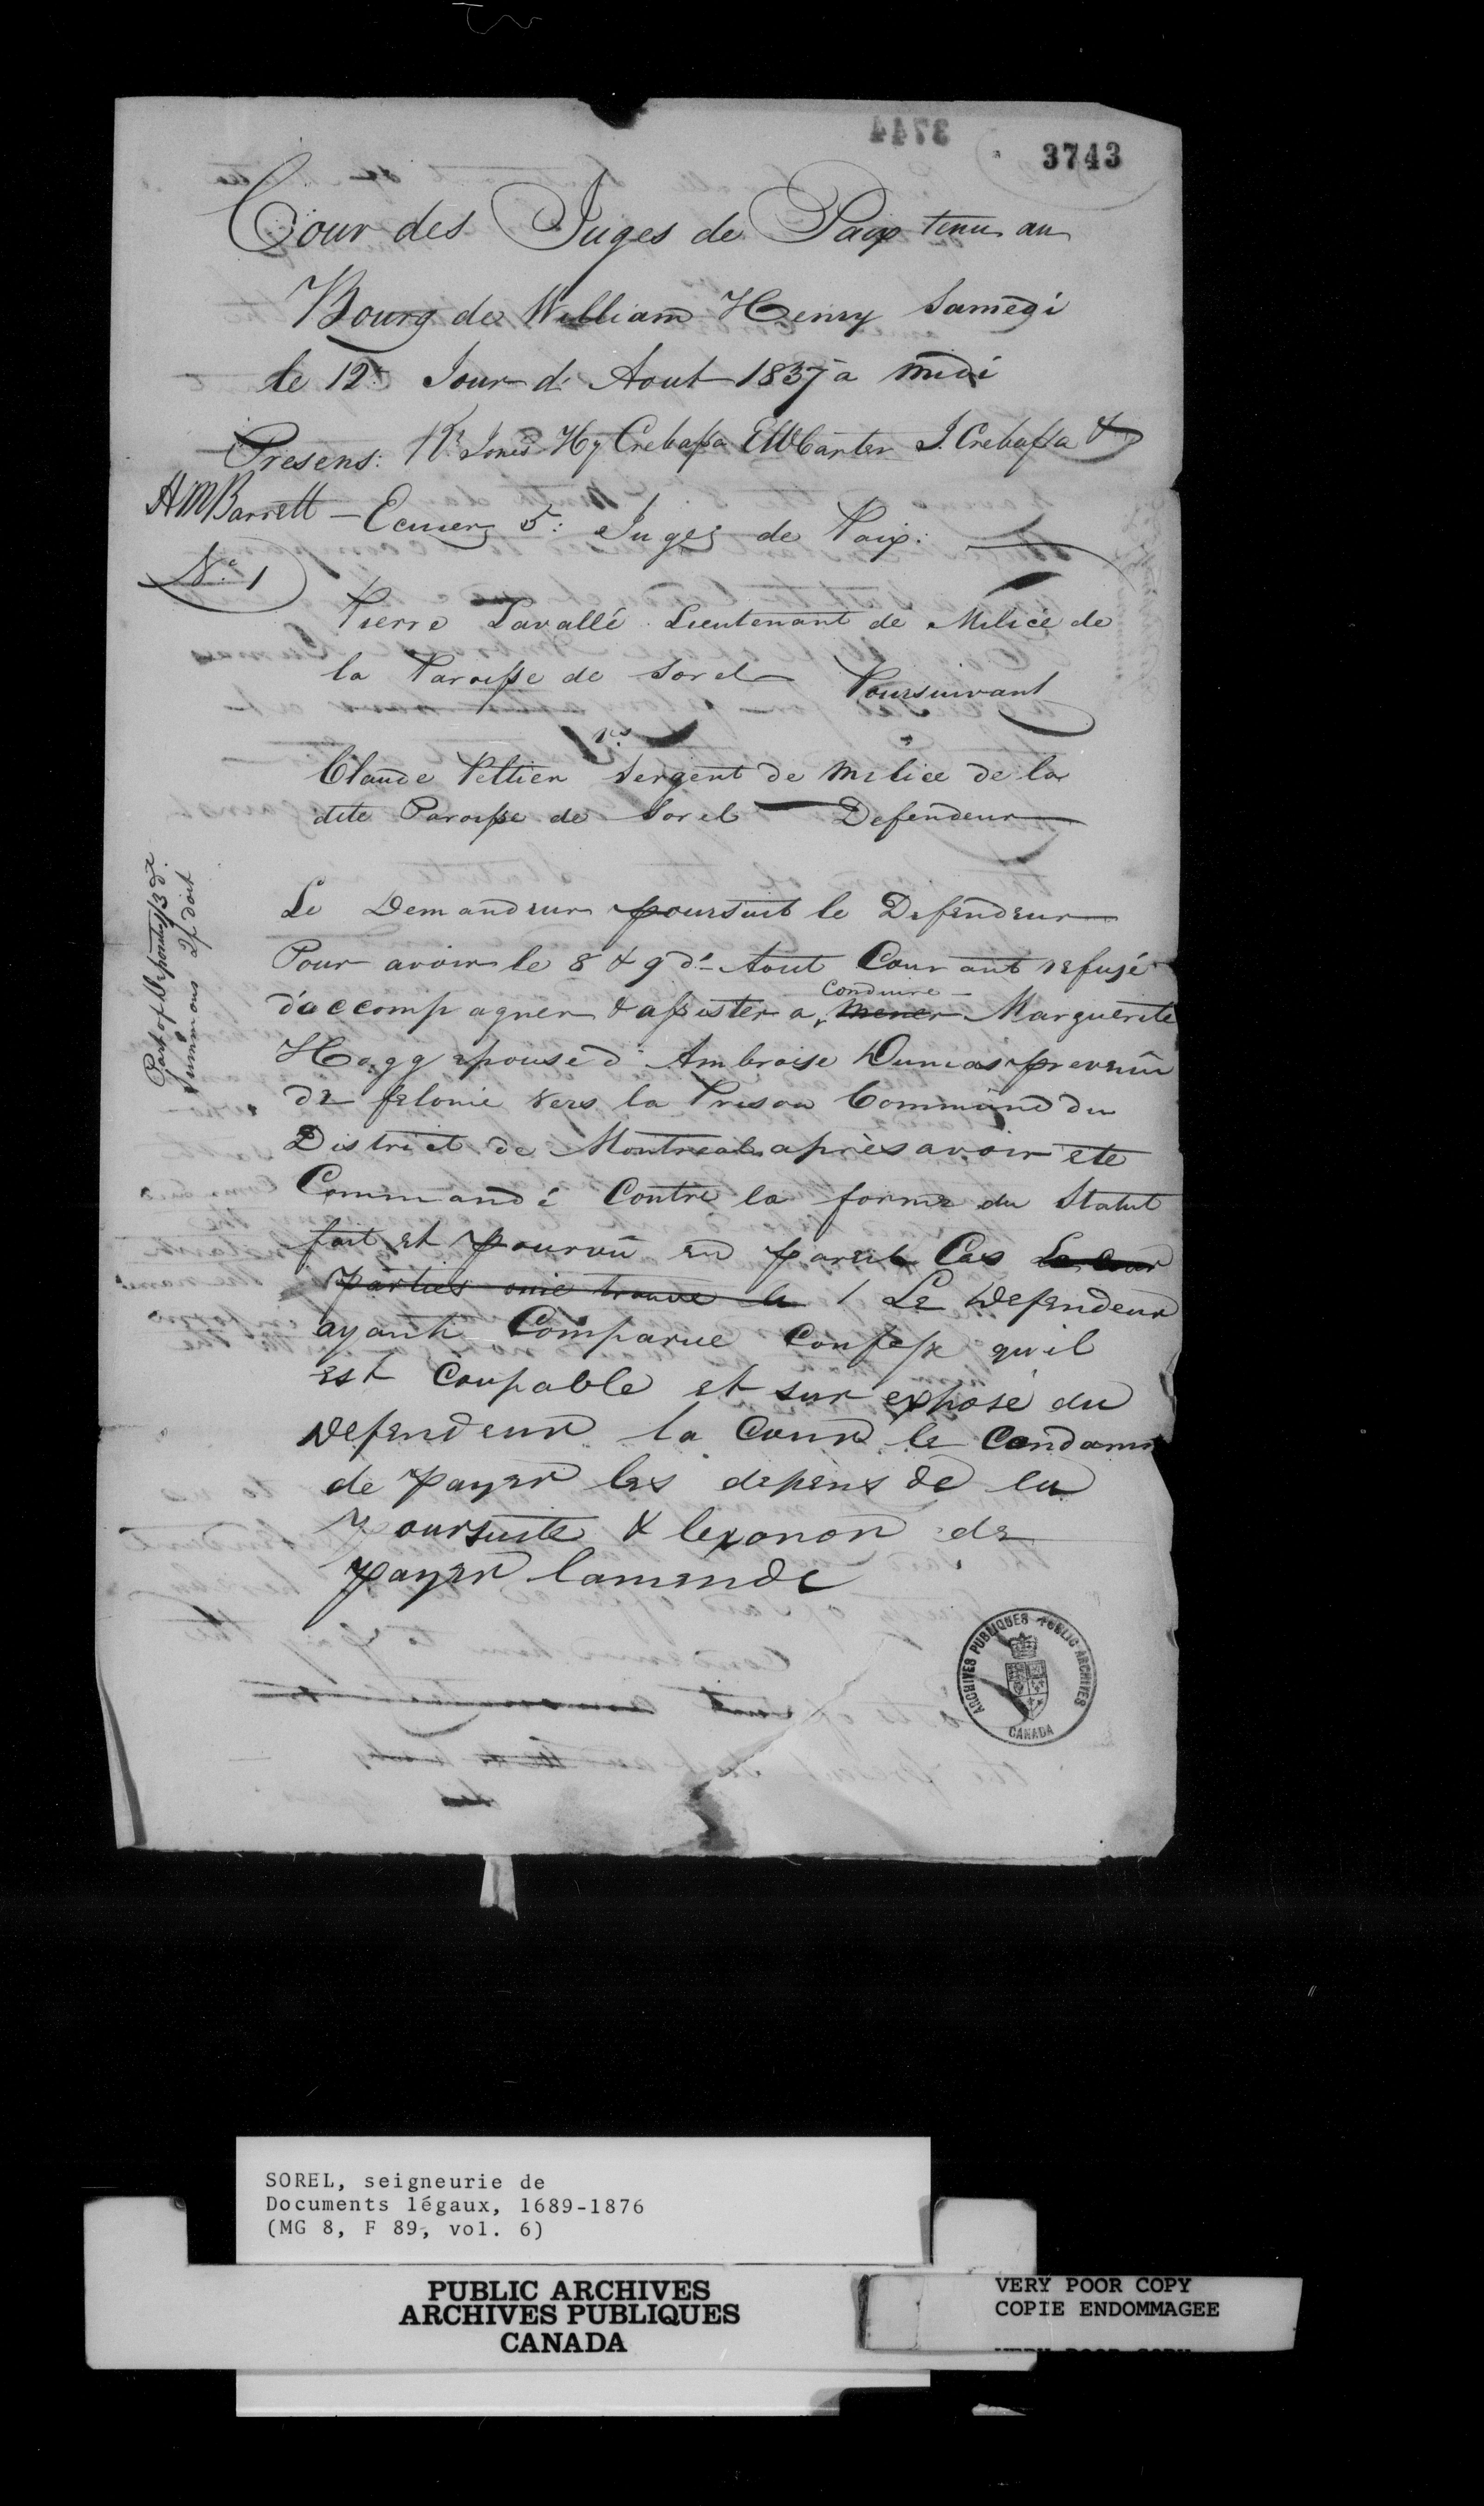 3743
Cour des Juges de Paix tenu au
Bourg de William Henry Samedi
le 12e Jour d' Aout 1837 à midi
Presens: Rt Jones Hy Crebassa EWCarter J. Crebassa &
AMBarrett - Ecuiers 5: Juges de Paix:
No. 1
Pierre Lavallé Lieutenant de Milice de
la Paroisse de Sorel Poursuivant
vs
Claude Peltier Sergent de Milice de la
dite Paroisse de Sorel Defendeur
Le Demandeur poursuit le Defendeur
Pour avoir le 8 & 9 d' Aout Courant refusé
d'accompagner & assister a mener Marguerite
conduire
Hogg epouse d' Ambroise Dumas prevenû
de felonie vers la Prison Commune du
District de Montreal après avoir ete
Commandé Contre la forme du Statut
fait et pourvû en pareil Cas La Cour
parties ouie trouve le / Le Defendeur
ayant Comparue Confesse qu'il
est Coupable et sur exposé du
Defendeur la Cour le Condamne
de payer les depens de la
poursuite & lexonor de
payer lamende
Part of Deponti 3d
Summons 2/ doit
ARCHIVES PUBLIQUES PUBLIC ARCHIVES
CANADA
SOREL, seigneurie de
Documents légaux, 1689-1876
(MG 8, F 89, vol. 6)
PUBLIC ARCHIVES
ARCHIVES PUBLIQUES
CANADA
VERY POOR COPY
COPIE ENDOMMAGEE